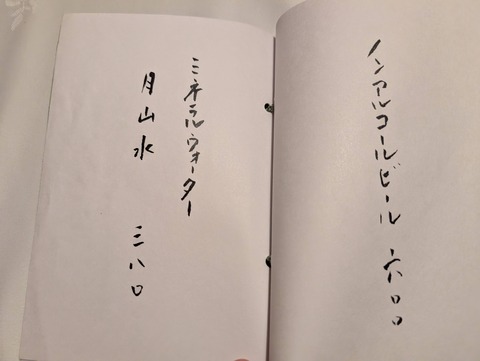 ノンアルコールビール 六〇〇
ミネラルウォーター
月山水 三八〇